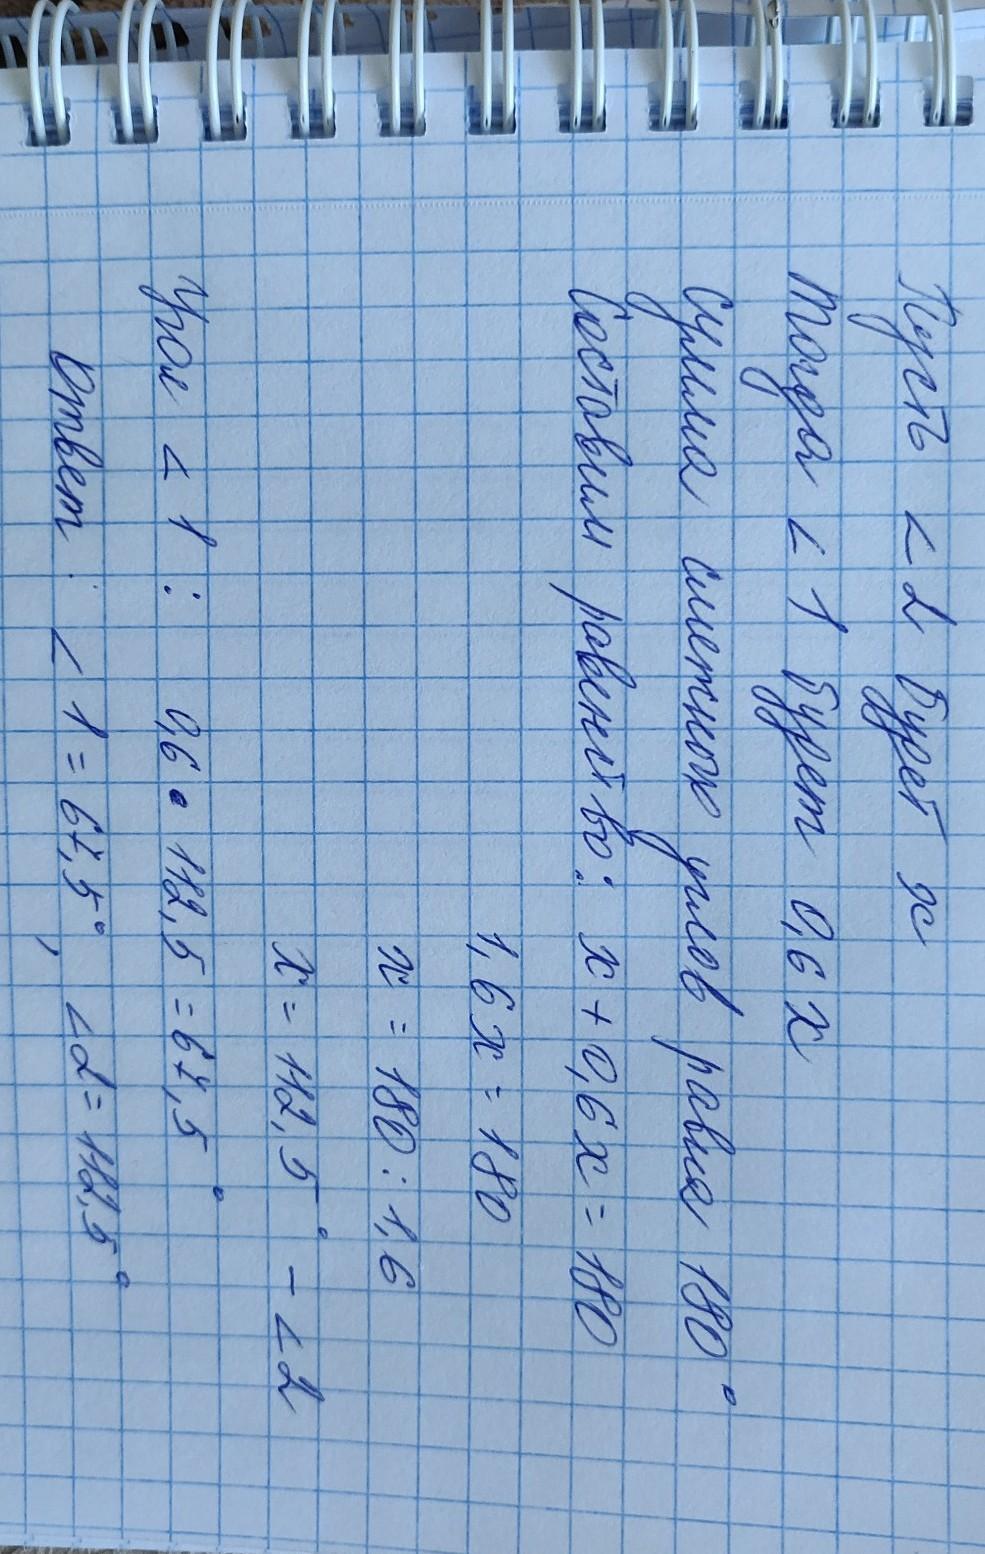 Пусть ∠2 будет x
Тогда ∠1 будет 0,6x
Сумма смежных углов равна 180°
Составим равенство: x + 0,6x = 180
1,6x = 180
x = 180 : 1,6
x = 112,5° - ∠2
Угол ∠1 : 0,6 • 112,5 = 67,5°
Ответ : ∠1 = 67,5°, ∠2 = 112,5°